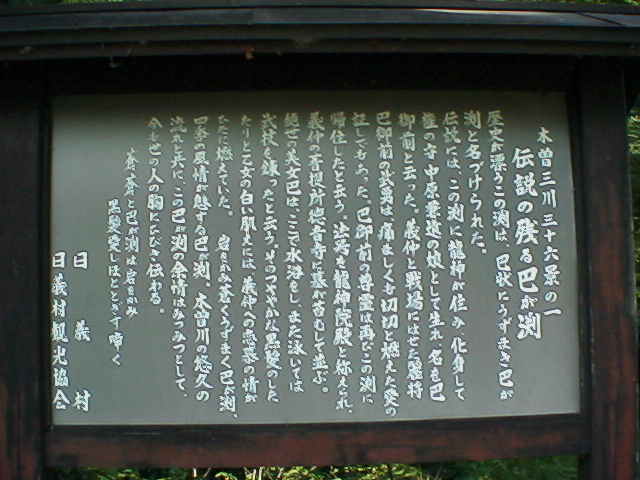 木曽三川三十六景の一
伝説の残る巴が渕
歴史が漂うこの渕は、巴状にうずまき巴が
渕と名づけられた。
伝説では、この渕に龍神が住み、化身して
権の守中原兼遠の娘として生れ、名を巴
御前と云った。義仲と戦場にはせた麗将
巴御前の武勇は、痛ましくも切切と燃えた愛の
証しでもあった。巴御前の尊霊は再びこの渕に
帰住したと云う。法号を龍神院殿と称えられ、
義仲の菩提所徳音寺に墓が苔むして並ぶ。
絶世の美女巴は、ここで水浴をし、また泳いでは
武技を錬ったと云う。そのつややかな黒髪のした
たりと乙女の白い肌えには、義仲への思慕の情が
ただに燃えていた。 岩をかみ蒼くうずまく巴が渕、
四季の風情が魅する巴が渕、木曽川の悠久の
流れと共に、この巴が渕の余情はみつみつとして、
今も世の人の胸にひびき伝わる。
蒼蒼と巴が渕は岩をかみ
黒髪愛しほととぎす啼く
日義村
日義村観光協会